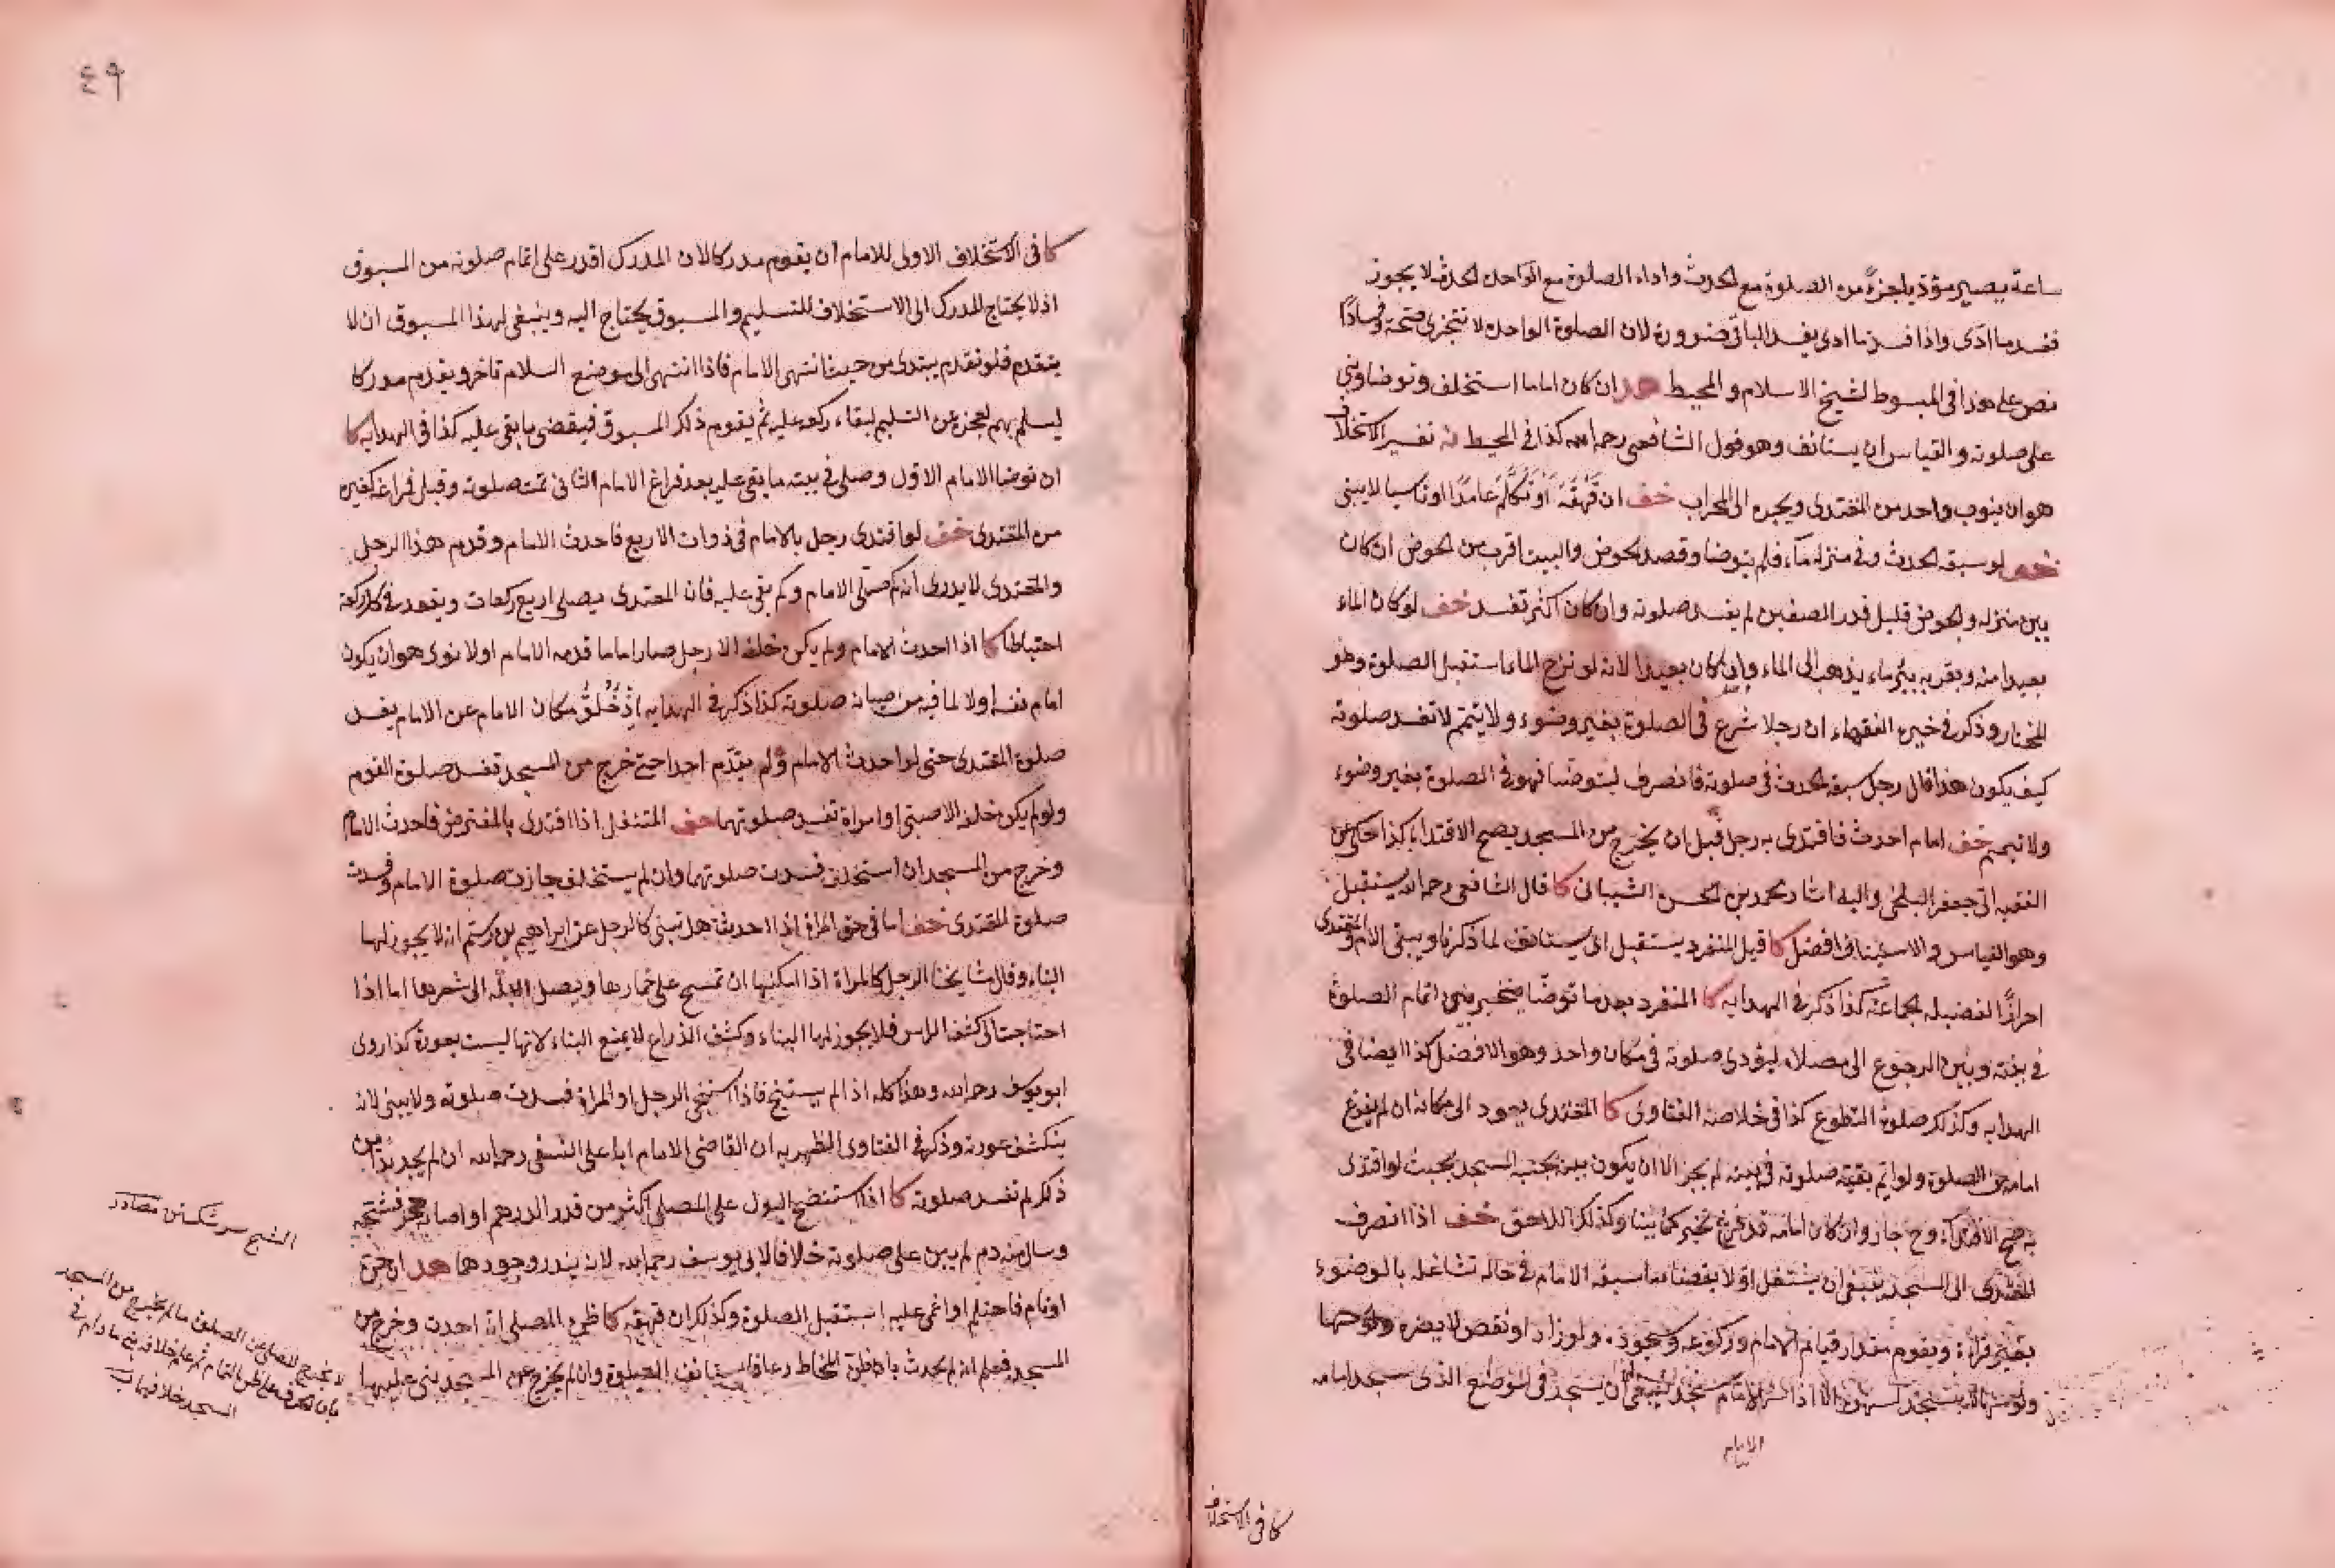 ساعة يصير مؤديا جزءً من الصلوة مع الحدث واداء الصلوة مع الواحد الحدث لا يجوز
ففسد ما ادى واذا فسد ما ادى يفسد الباقى ضرورة لان الصلوة الواحدة لا تتجزى صحة وفسادًا
نص على هذا فى المبسوط لشيخ الاسلام والمحيط هد ان كان اماما استخلف وتوضا وبنى
على صلوته والقياس ان يستانف وهو قول الشافعى رحمه الله كذا فى المحيط تفسير الاستخلاف
هو ان ينوب واحد من المقتدى ويجره الى المحراب خف ان قهقه او تكلم عامدًا او ناسيا لا يبنى
خف لو سبقه الحدث وفى منزله ماء فلم يتوضا وقصد الحوض والبيت اقرب من الحوض ان كان
بين منزله والحوض قليل قدر الصفين لم يفسد صلوته وان كان اكثر تفسد خف لو كان الماء
بعيدا منه وبقربه بئر ماء يذهب الى الماء وان كان بعيدا لانه لو نزح الماء استقبل الصلوة وهو
المختار وذكر فى خيرة الفقهاء ان رجلا شرع فى الصلوة بغير وضوء ولا يتمم لا تفسد صلوته
كيف يكون هذا قال رجل سبقه الحدث فى صلوته فانصرف ليتوضا فهو فى الصلوة بغير وضوء
ولا تيمم خف امام احدث فاقتدى به رجل قبل ان يخرج من المسجد يصح الاقتداء كذا حكى عن
الفقيه ابى جعفر البلخى واليه اشار محمد بن الحسن الشيبانى كا قال الشافعى رحمه الله يستقبل
وهو القياس والاستيناف افضل كا قيل المنفرد يستقبل اى يستانف لما ذكرنا ويبنى الامام والمقتدى
احرازًا لفضيلة الجماعة كذا ذكر فى الهداية كا المنفرد بعد ما توضا يتخير بين اتمام الصلوة
فى بيته وبين الرجوع الى مصلاه ليؤدى صلوته فى مكان واحد وهو الافضل كذا ايضا فى
الهداية وكذلك صلوة التطوع كذا فى خلاصة الفتاوى كا المقتدى يعود الى مكانه ان لم يفرغ
امامه من الصلوة ولو اتم بقية صلوته فى بيته لم يجز الا ان يكون بيته بجنب المسجد بحيث لو اقتدى
به صح الاقتداء وح جاز وان كان امامه قد فرغ تخير كما بينا وكذلك اللاحق خف اذا انصرف
المقتدى الى المسجد ينبغى ان يشتغل اولا بقضاء ما سبقه الامام فى حالة تشاغله بالوضوء
بغير قراءة ويقوم مقدار قيام الامام وركوعه وسجوده ولو زاد او نقص لا يضره
الامام سجد ينبغى ان يسجد فى الموضع الذى سجد امامه
الامام
كا فى الاستخلاف
٤٩
كا فى الاستخلاف الاولى للامام ان يقوم مدركا لان المدرك اقدر على اتمام صلوته من المسبوق
اذ لا يحتاج المدرك الى الاستخلاف للتسليم والمسبوق يحتاج اليه وينبغى لهذا المسبوق ان لا
يتقدم فلو تقدم يبتدى من حيث انتهى الامام فاذا انتهى الى موضع السلام تاخر ويقدم مدركا
ليسلم بهم لعجزه عن التسليم لبقاء ركعة عليه ثم يقوم ذلك المسبوق فيقضى ما بقى عليه كذا فى الهداية كا
ان توضا الامام الاول وصلى فى بيته ما بقى عليه بعد فراغ الامام الثانى تمت صلوته وقبل فراغه كغيره
من المقتدى خف لو اقتدى رجل بالامام فى ذوات الاربع فاحدث الامام وقدم هذا الرجل
والمقتدى لا يدرى انه كم صلى الامام وكم بقى عليه فان المقتدى يصلى اربع ركعات ويقعد فى كل ركعة
احتياطا كا اذا احدث الامام ولم يكن خلفه الا رجل صار اماما قدمه الامام اولا نوى هو ان يكون
امام نفسه اولا لما فيه من صيانة صلوته كذا ذكر فى الهداية اذ خلو مكان الامام عن الامام يفسد
صلوة المقتدى حتى لو احدث الامام ولم يقدّم احدا حتى خرج من المسجد تفسد صلوة القوم
ولو لم يكن خلفه الا صبى او امراة تفسد صلوتهما خف المتنفل اذا اقتدى بالمفترض فاحدث الامام
وخرج من المسجد ان استخلف فسدت صلوتهما وان لم يستخلف جازت صلوة الامام وفسدت
صلوة المقتدى خف اما فى حق المراة اذا احدثت هل تبنى كالرجل عن ابراهيم بن رستم انه لا يجوز لها
البناء وقال مشايخنا الرجل كالمراة اذا امكنها ان تمسح على خمارها ويصل البلة الى شعرها اما اذا
احتاجت الى كشف الراس فلا يجوز لها البناء وكشف الذراع لا يمنع البناء لانها ليست بعورة كذا روى
ابو يوسف رحمه الله وهذا كله اذا لم يستنج فاذا استنجى الرجل او المراة فسدت صلوته ولا يبنى لانه
ينكشف عورته وذكر فى الفتاوى الظهيرية ان القاضى الامام ابا على النسفى رحمه الله ان لم يجد بدًا من
ذلك لم تفسد صلوته كا اذا انتضح البول على المصلى اكثر من قدر الدرهم او اصابه حجر فشجه
وسال منه دم لم يبن على صلوته خلافا لابى يوسف رحمه الله لانه يندر وجودهما هد ان جن
او نام فاحتلم او اغمى عليه استقبل الصلوة وكذلك ان قهقه كا ظن المصلى انه احدث وخرج من
المسجد فعلم انه لم يحدث رعافا استانف الصلوة وان لم يخرج من المسجد بنى عليها